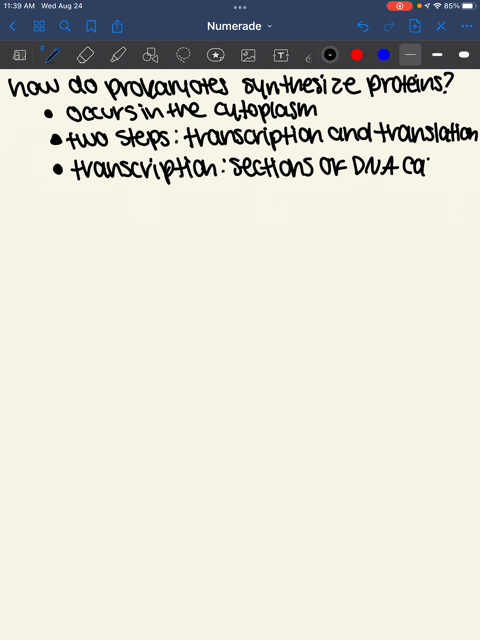 11:39 AM Wed Aug 24
85%
Numerade
T
how do prokaryotes synthesize proteins?
• occurs in the cytoplasm
• two steps: transcription and translation
• transcription: sections of DNA ca